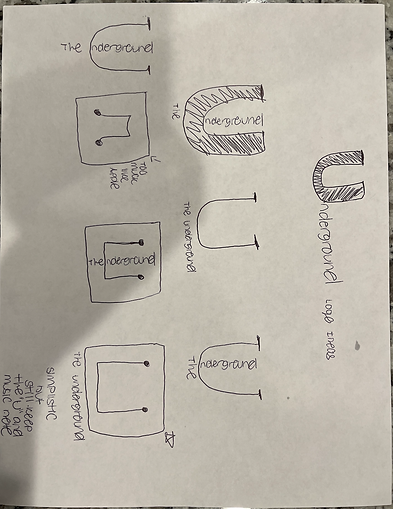 Underground Logo Ideas
The Underground
The Underground
The underground
The Underground
TOO
much
like
apple
The Underground
The underground
simplistic
but
still keep
the "U" and
music note